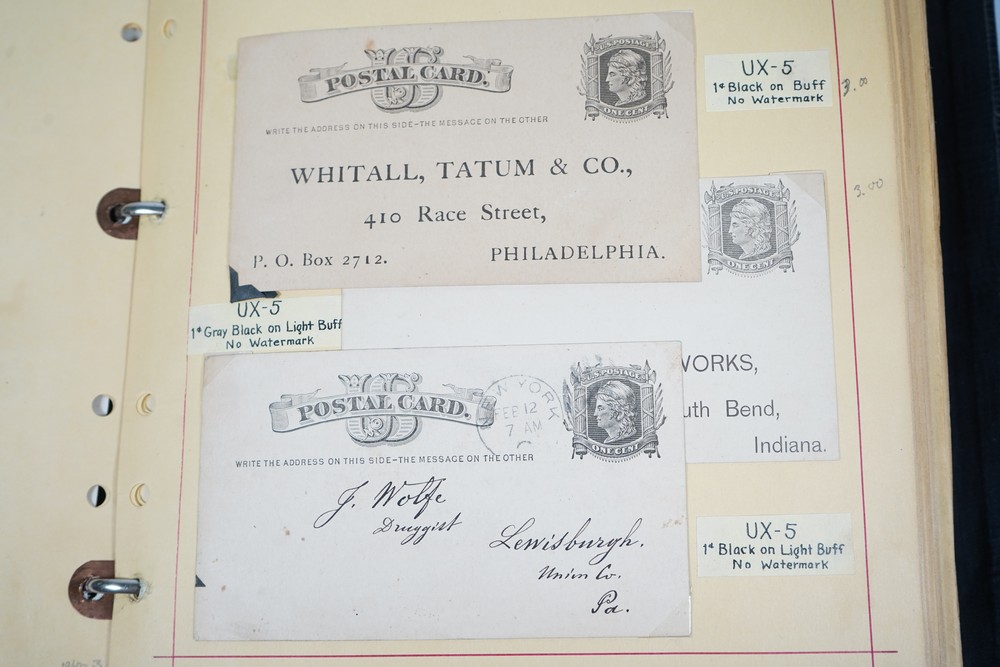 U.S. POSTAGE
POSTAL CARD.
US
ONE CENT
WRITE THE ADDRESS ON THIS SIDE-THE MESSAGE ON THE OTHER
WHITALL, TATUM & CO.,
410 Race Street,
P. O. Box 2712.
PHILADELPHIA.
UX-5
1¢ Black on Buff
No Watermark
3.00
3.00
U.S. POSTAGE
ONE CENT
WORKS,
uth Bend,
Indiana.
UX-5
1¢ Gray Black on Light Buff
No Watermark
U.S. POSTAGE
POSTAL CARD.
US
ONE CENT
NEW YORK
FEB 12
7 AM
WRITE THE ADDRESS ON THIS SIDE-THE MESSAGE ON THE OTHER
J. Wolfe
Druggist
Lewisburgh.
Union Co.
Pa.
UX-5
1¢ Black on Light Buff
No Watermark